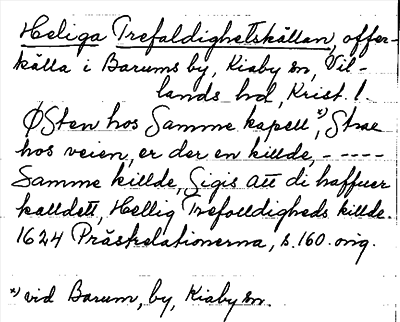 Heliga Trefaldighetskällan, offer-
källa i Barums by, Kiaby sn, Vil-
lands hd, Krist. l.
Østen hos Samme kapell*), Strax
hos veien, er der en killde, - - - - -
Samme killde, Sigis att di haffuer
kalldett, Hellig Trefolldigheds killde.
1624 Prästrelationerna, s. 160. orig.
*) vid Barum, by, Kiaby sn.